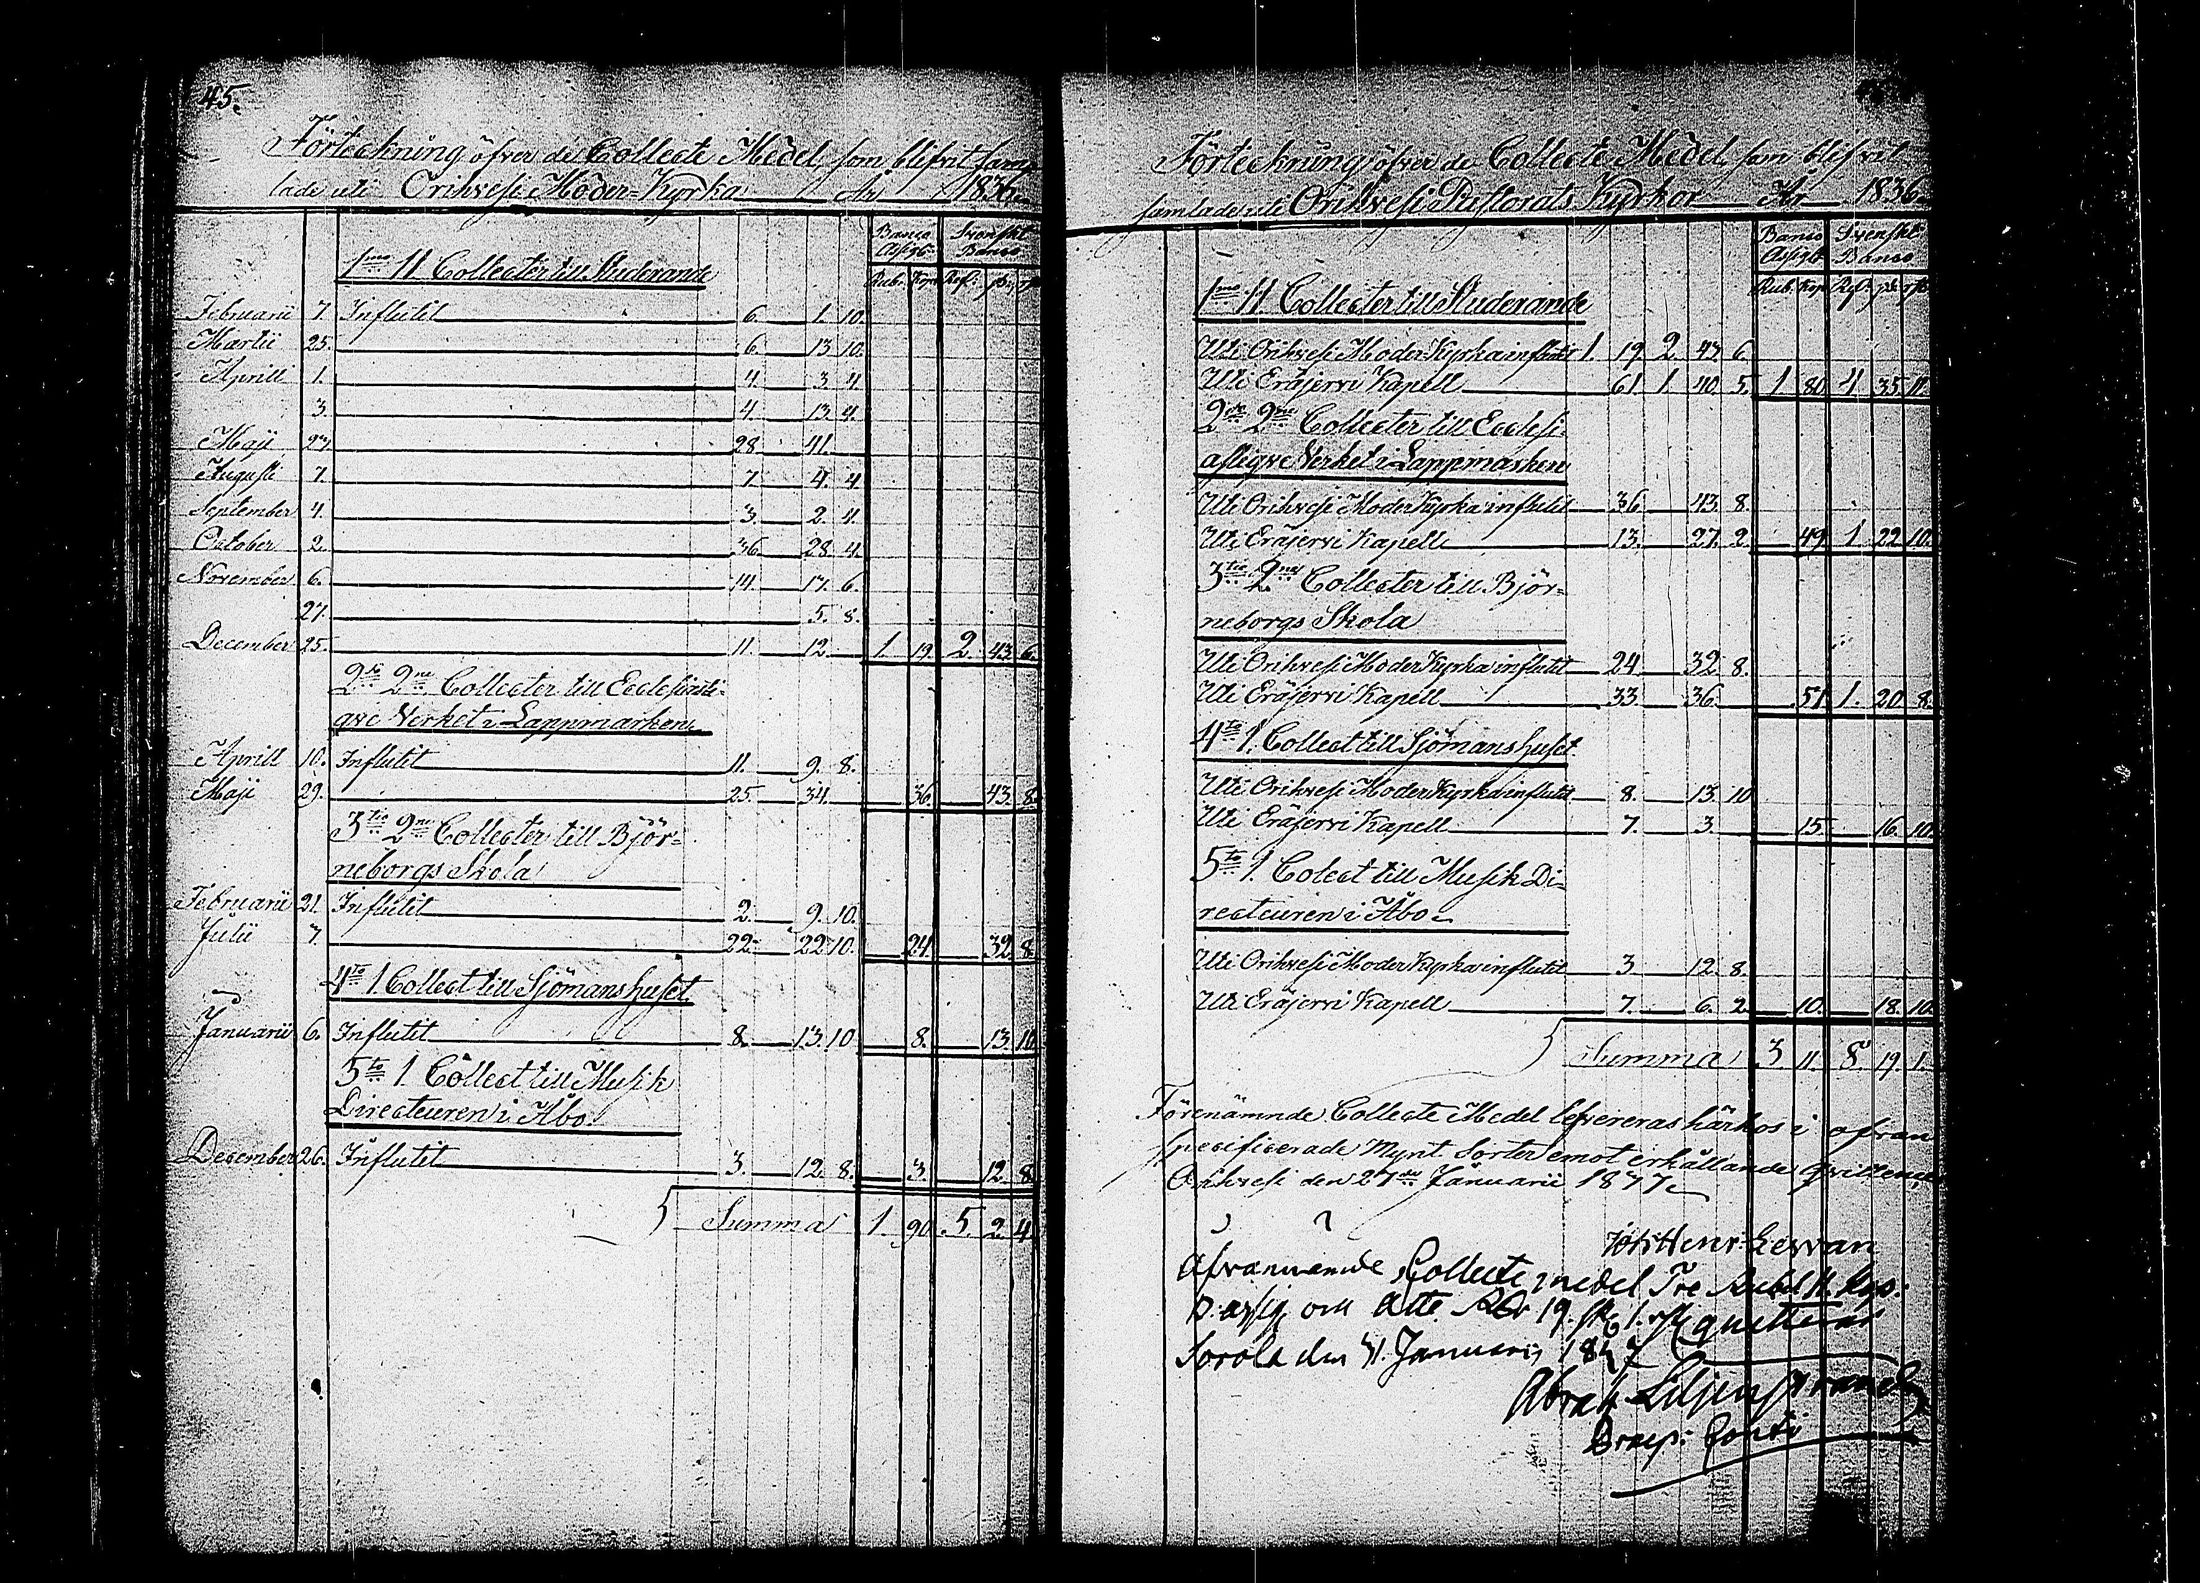 45.
Förteckning öfver de Collecte Medel, som blifvit sam-
lade uti Orihvesi Moder-Kyrka År 1836
Banco Assigt. Svenskt Banco
Rub. Kop. Rdr. sk. rst.
1mo 11 Collecter till Studerande
Februarii 7 Influtit 6. 1. 10.
Martii 25. 6. 13 10.
Aprill 1. 4 3 4
3 4. 13 4.
Maji 27. 28 41.
Augusti 7. 7 4. 4
September 4. 3. 2. 4.
October 2. 36 28 4.
November 6. 14. 17. 6.
27. 5. 8.
December 25. 11. 12 1. 19. 2. 43. 6.
2do 2ne Collecter till Ecclesiasti-
qve Verket i Lappmarken
Aprill 10. Influtit 11. 9. 8.
Maji 29. 25. 34. 36. 43. 8.
3tio 2ne Collecter till Björ-
neborgs Skola
Februarii 21. Influtit 2. 9. 10.
Julii 7. 22. 22 10. 24 32. 8.
4to 1 Collect till Sjömanshuset
Januarii 6. Influtit 8. 13. 10 8. 13. 10
5to 1 Collect till Musik
Directeuren i Åbo
December 26. Influtit 3. 12. 8. 3. 12. 8
Summa 1. 90. 5. 2. 4
Förteckning öfver de Collecte Medel, som blifvit
samlade uti Orihvesi Pastorats Kyrkor År 1836
Banco Assigt. Svenskt Banco
Rub. Kop. Rdr. sk. rst.
1mo 11 Collecter till Studerande
Uti Orihvesi Moder Kyrka influtit 1. 19. 2 43 6
Uti Eräjervi Kapell 61. 1. 40. 5. 1 80 4 35 11.
2do 2ne Collecter till Ecclesi-
astiqve Verket i Lappmarken
Uti Orihvesi Moder Kyrka influtit 36 43. 8.
Uti Eräjervi Kapell 13. 27. 2. 49. 1 22. 10.
3tio 2ne Collecter till Björ-
neborgs Skola
Uti Orihvesi Moder Kyrka influtit 24 32. 8.
Uti Eräjervi Kapell 33. 36. 51. 1. 20. 8.
4to 1. Collect till Sjömanshuset
Uti Orihvesi Moder Kyrka influtit 8. 13 10
Uti Eräjervi Kapell 7. 3. 15. 16. 10.
5to 1. Colect till Musik Di-
recteuren i Åbo
Uti Orihvesi Moder Kyrka influtit 3 12. 8.
Uti Eräjervi Kapell 7. 6. 2 10. 18. 10.
Summa 3. 11. 8. 19. 1.
Förenämnde Collecte Medel lefvereras härhos i ofvan
specificerade Mynt Sorter emot erhållande qvittence
Orihvesi den 27de Januarii 1837
Henr.
Ofvannämnde Collecte medel Tre Rubel 11. Kop.
B. assig. och Åtta Rdr 19 sk 1. rst. qvitteras
Sorola den 31. Januarii 1837
Abrah. Liljenstrand